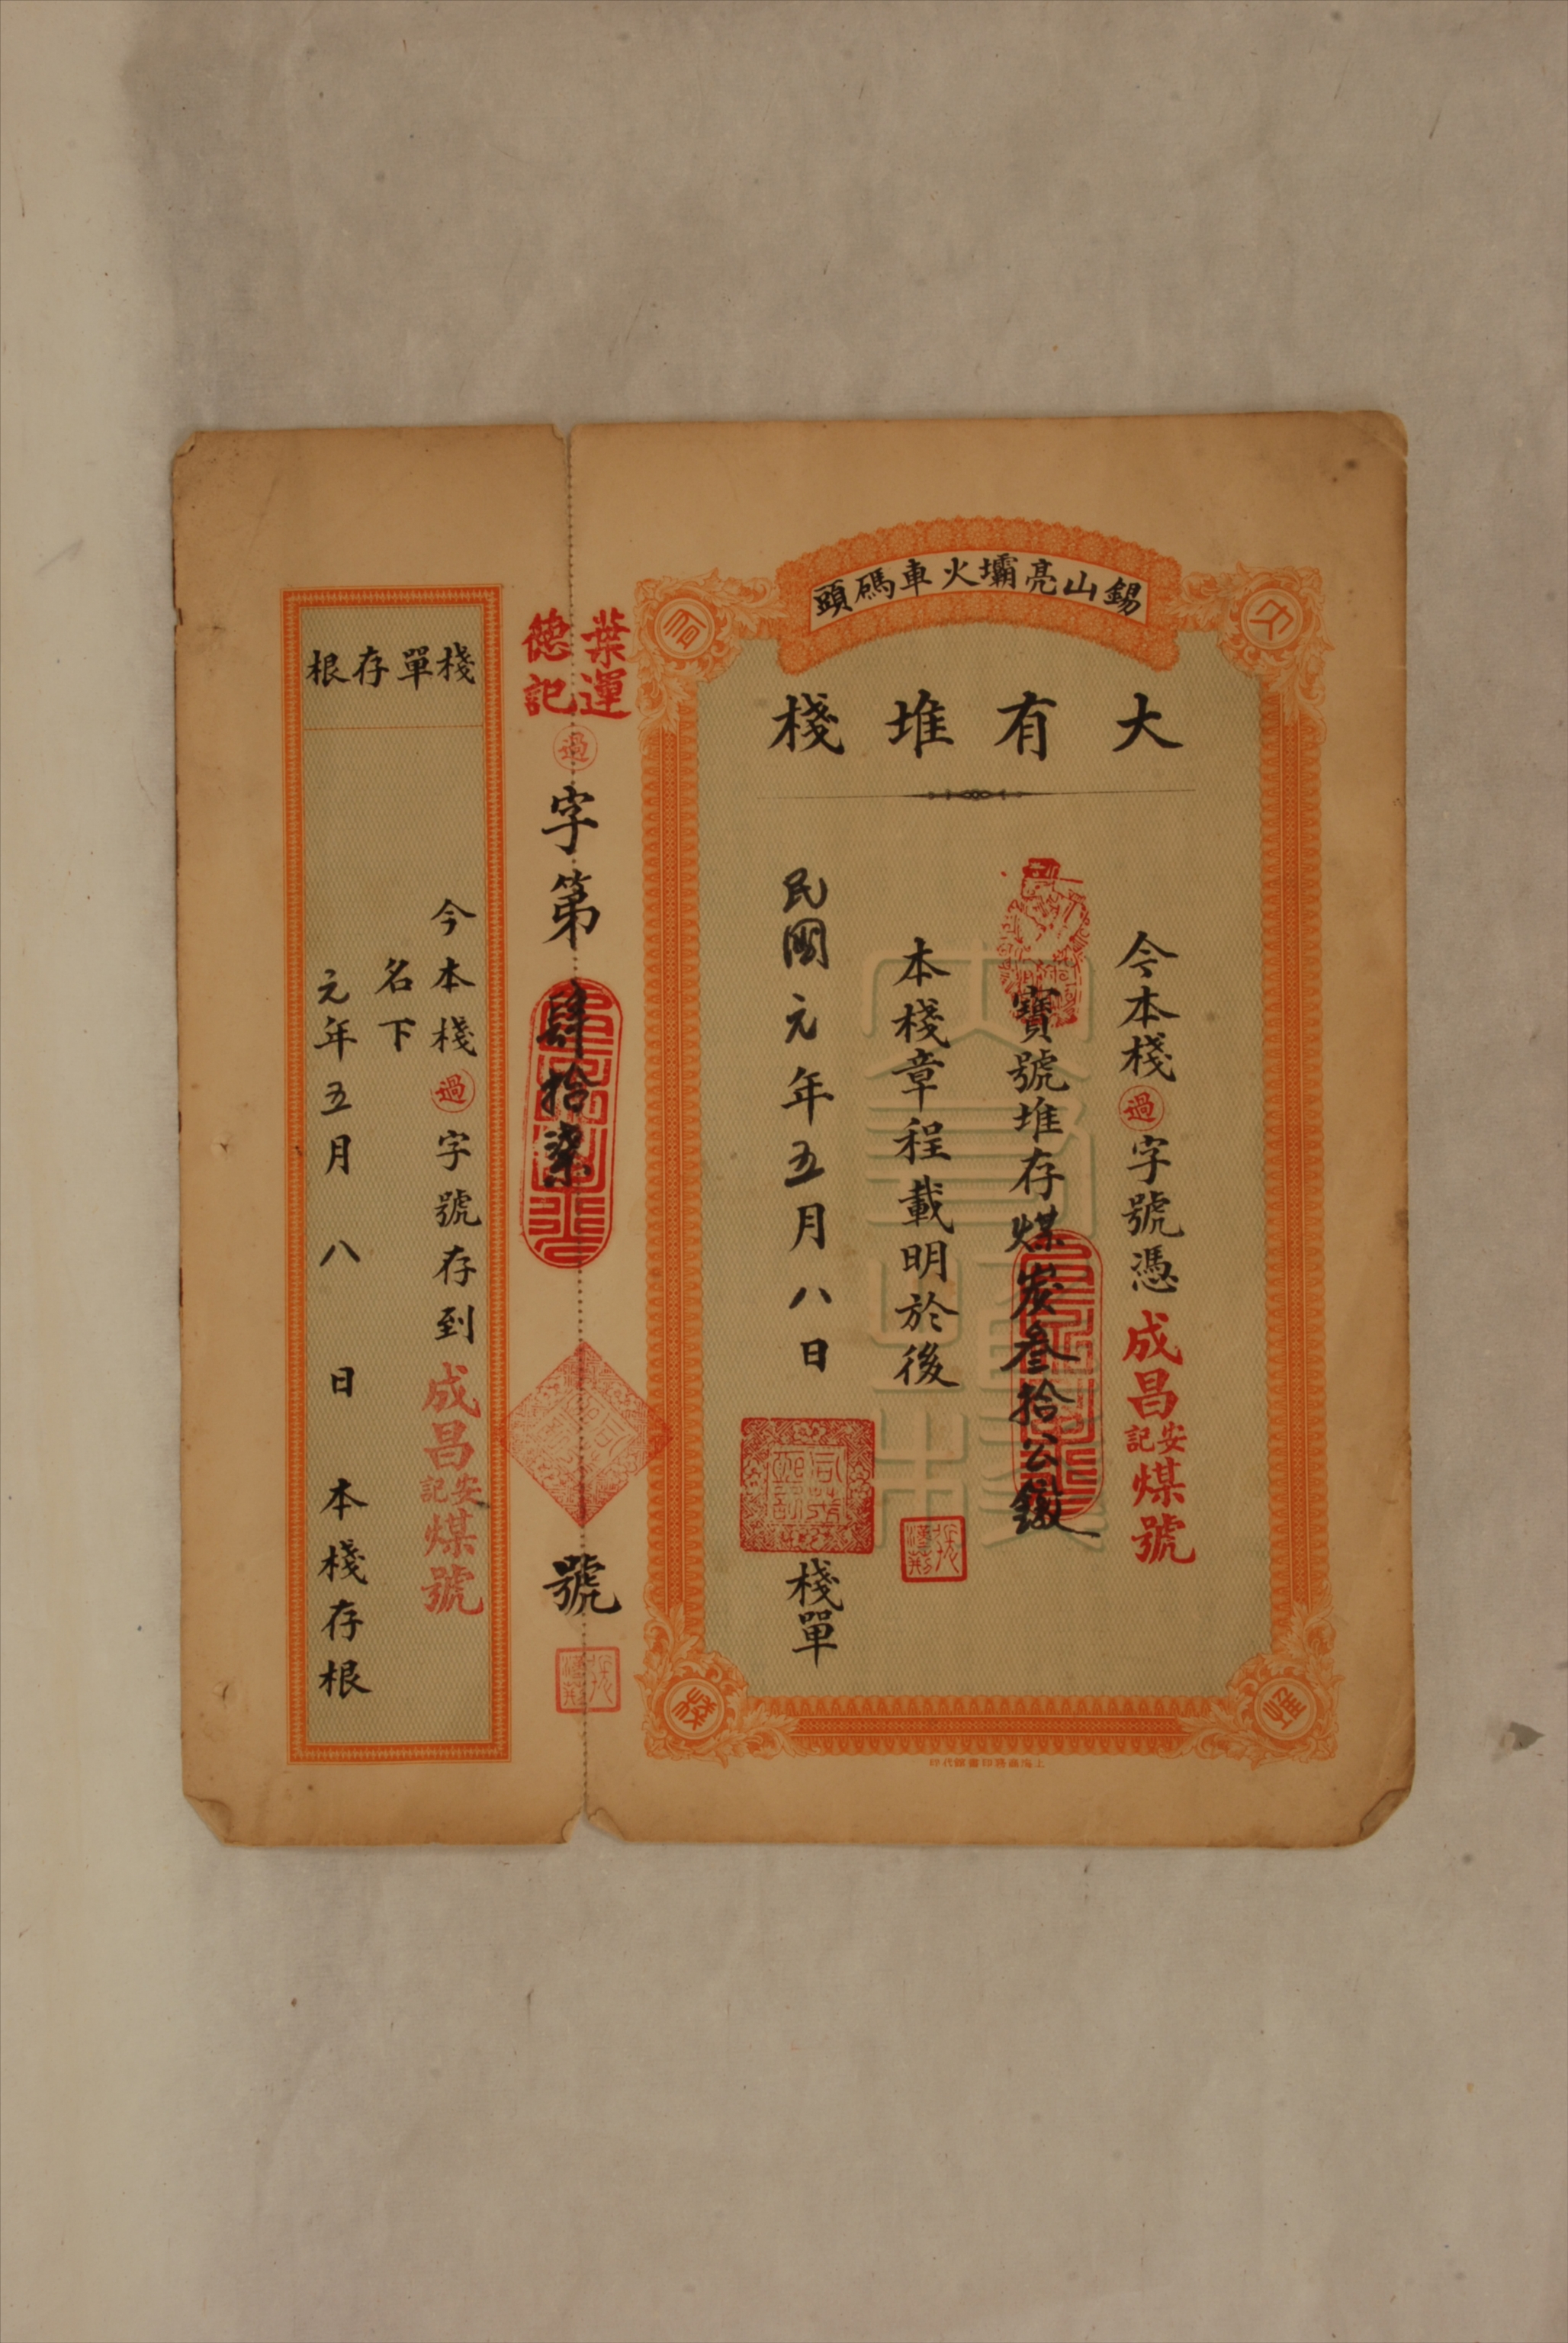 錫山亮壩火車碼頭
大有堆棧
今本棧過字號憑成昌安記煤號
寶號堆存煤炭叁拾公鐓
本棧章程載明於後
民國元年五月八日
棧單
上海商務印書館代印
葉運德記
過字第肆拾柒號
棧單存根
今本棧過字號存到成昌安記煤號
名下
元年五月八日本棧存根